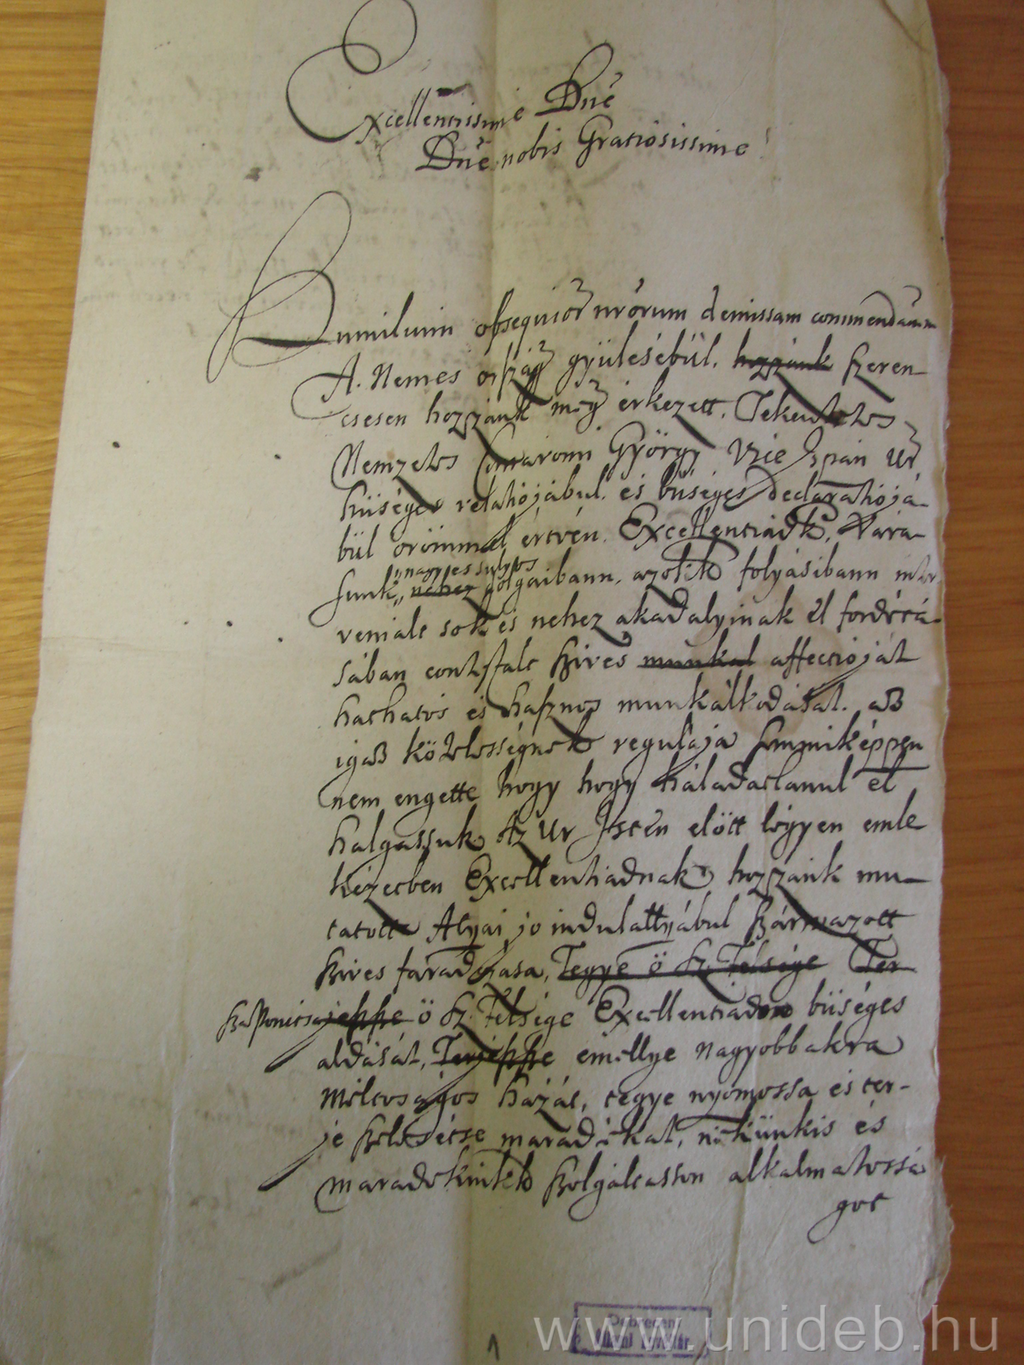 Excellentissime Dne
Dne nobis Gratiosissime
Humilium obsequior nrorum demissam commendaom
A. Nemes orszagh gyülesébül. hozzank szeren-
csesen hozzank meg érkezett. Tekentetes
Nemzetes Comaromi György Vice Ispán Ur
hüséges relatiojábul. és büséges declaratiojá-
bül örömmel értvén. Excellentiadk. Vára-
sunk nehez dolgaibann. azokk folyásibann
nagy es sulyos
veniale sok és nehez akadalyinak el forditá-
sában szives munkal affectioját
hathatos és hasznos munkálkodását. asz
igasz kötelességnek regulája semmiképpen
nem engette hogy hogy háladatlanul el
halgassuk Az Ur Isten elött légyen emle
kézetben Excellentiadnak hozzánk mu-
tatott Atyai jo indulattyábul származott
szives faradsaga, Tegye ö Sz. Felsége Ter
jeszsze ö Sz. Felsége Excellentiadra büséges
aldását, Terjeszsze emellye nagyobbakra
Méltosagos házát, tegye nyomossa és ter-
je maradékat, nékünkis és
maradekinkk szolgáltasson alkalmatossá
got
1
Debreceni
www.unideb.hu